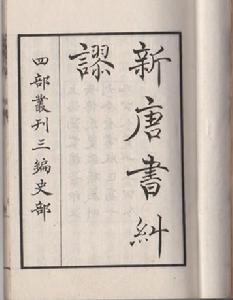 新唐書糾
謬
四部叢刊三編史部